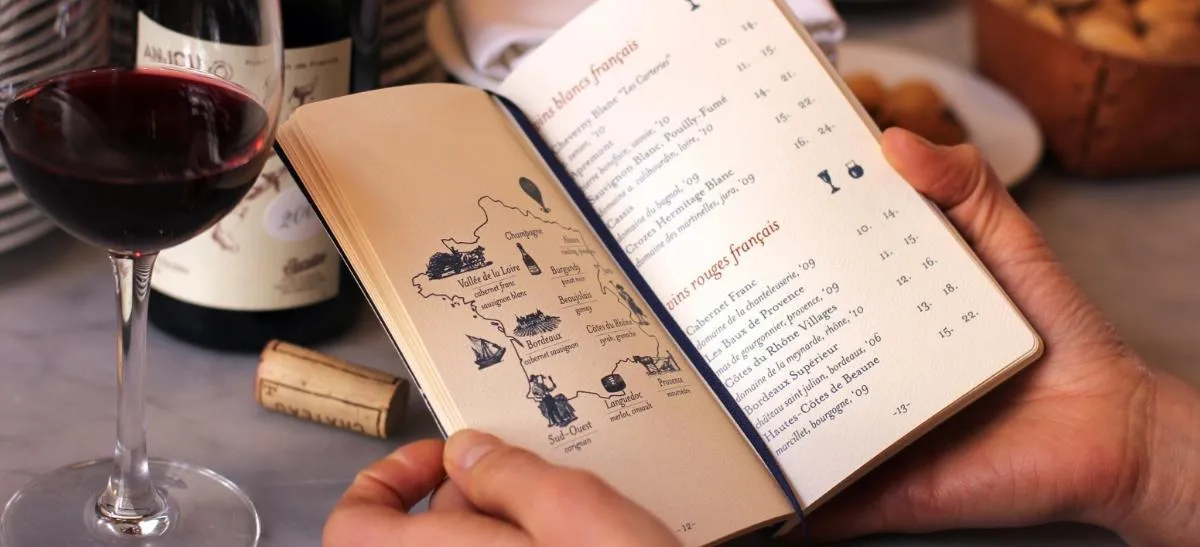 ANJOU
CHATEAU
Champagne
Alsace
Vallée de la Loire
cabernet franc
sauvignon blanc
Burgundy
pinot noir
Beaujolais
gamay
Bordeaux
cabernet sauvignon
Côtes du Rhône
syrah, grenache
Provence
mourvedre
Languedoc
merlot, cinsault
Sud-Ouest
carignan
-12-
vins blancs français
Cheverny Blanc "Les Carteries" 10. 14.
'10
Apremont 11. 15.
pierre boniface, savoie, '10
Sauvignon Blanc, Pouilly-Fumé 14. 21.
domaine a. cailbourdin, loire, '10
Cassis 15. 22.
domaine du bagnol, '09
Crozes Hermitage Blanc 16. 24.
domaine des martinelles, jura, '09
vins rouges français
Cabernet Franc 10. 14.
domaine de la chanteleuserie, '09
Les Baux de Provence 11. 15.
mas de gourgonnier, provence, '09
Côtes du Rhône Villages 12. 16.
domaine de la meynarde, rhône, '10
Bordeaux Supérieur 13. 18.
château saint julian, bordeaux, '06
Hautes-Côtes de Beaune 15. 22.
marcillet, bourgogne, '09
-13-